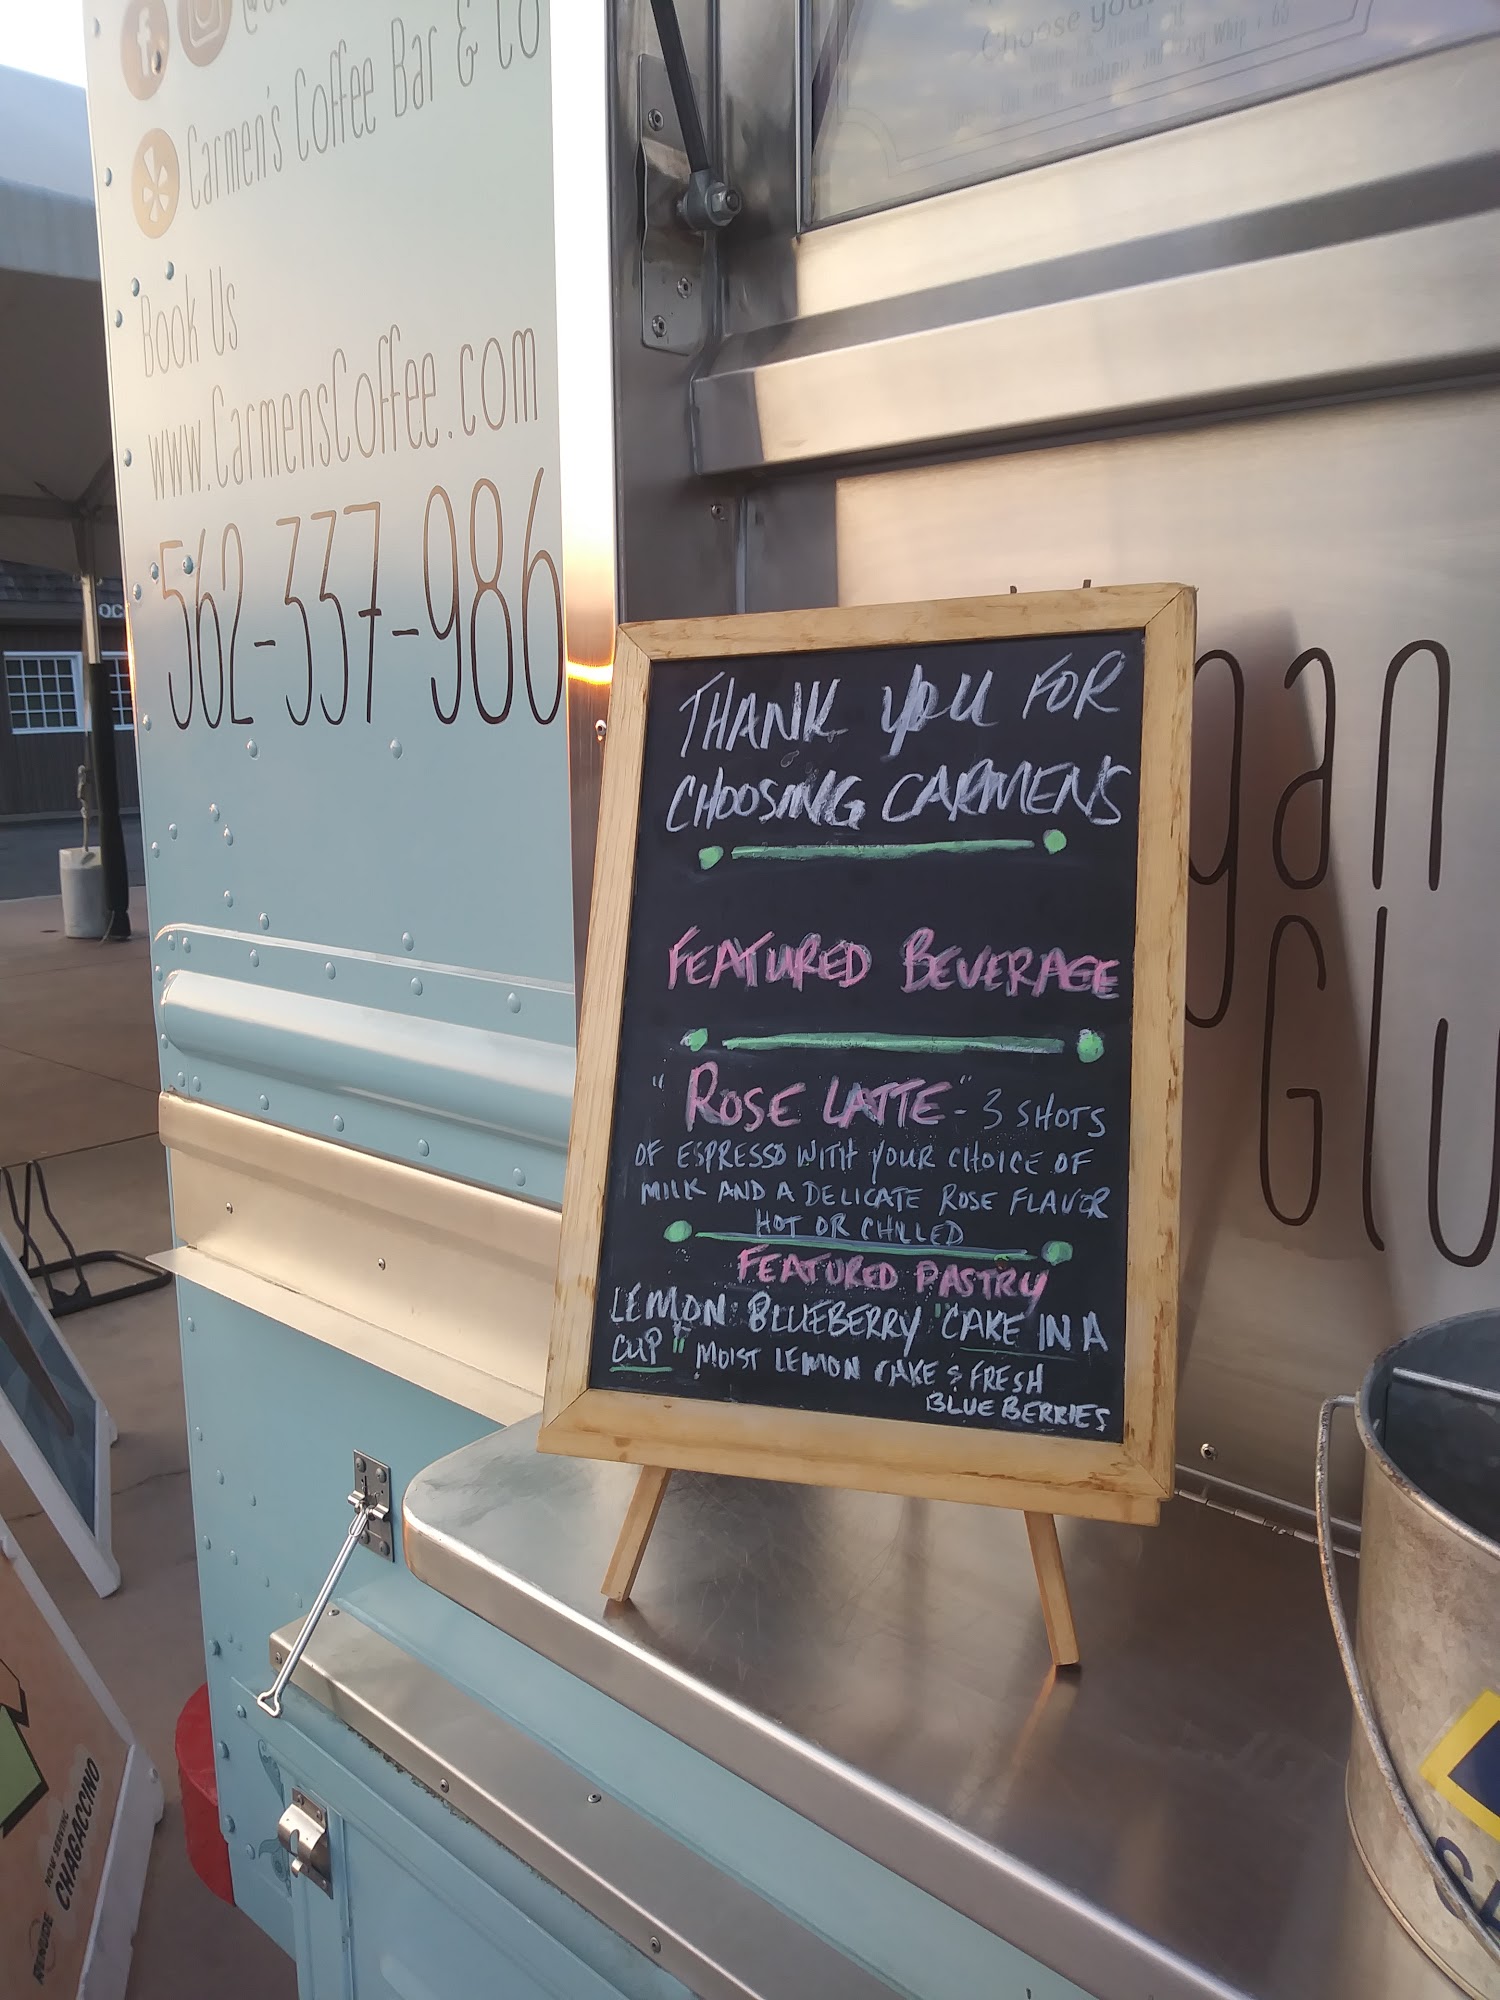 Carmen's Coffee Bar & Co
Book Us
www.CarmensCoffee.com
562-337-986
Choose your
THANK YOU FOR
CHOOSING CARMENS
FEATURED BEVERAGE
"ROSE LATTE" - 3 SHOTS
OF ESPRESSO WITH YOUR CHOICE OF
MILK AND A DELICATE ROSE FLAVOR
HOT OR CHILLED
FEATURED PASTRY
LEMON BLUEBERRY "CAKE IN A
CUP" MOIST LEMON CAKE & FRESH
BLUEBERRIES
gan
Glu
OC
NOW SERVING
CHAGACCINO
RENUDE